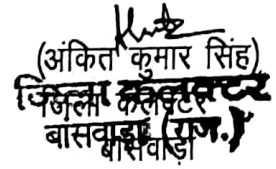 (अंकित कुमार सिंह)
जिला कलक्टर
जिला कलक्टर
बांसवाड़ा (राज.)
बांसवाड़ा